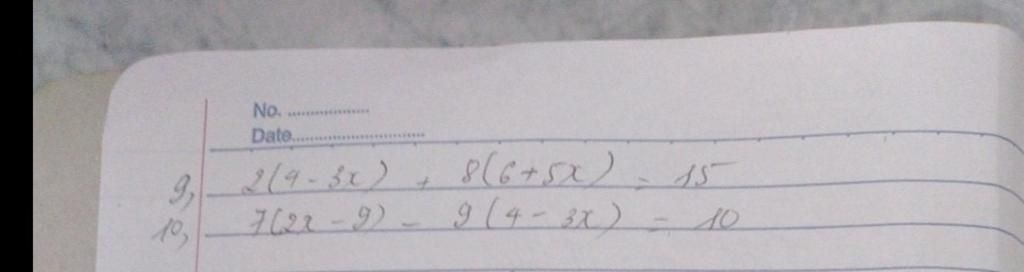 No. ..................
Date..............................
9, 2(4-3x) + 8(6+5x) = 15
10, 7(2x-9) - 9(4-3x) = 10